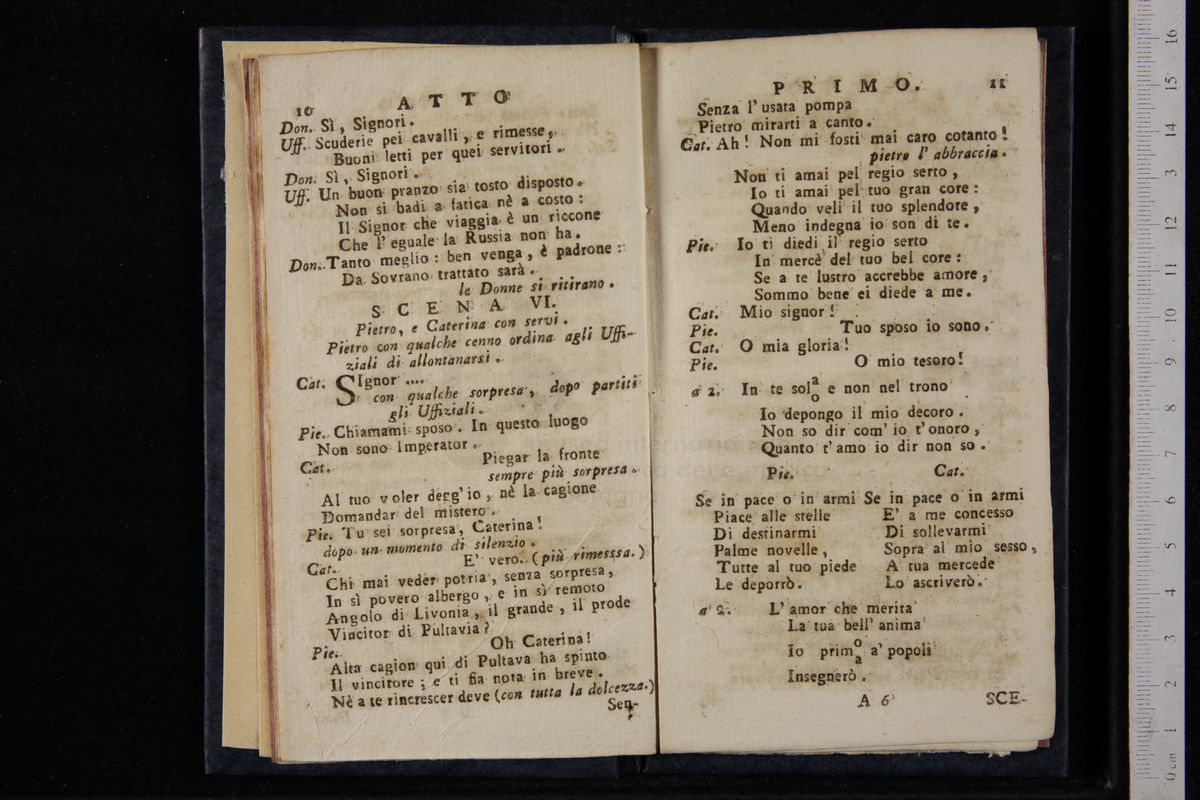 10 ATTO
Don. Sì, Signori.
Uff. Scuderie pei cavalli, e rimesse,
Buoni letti per quei servitori.
Don. Sì, Signori.
Uff. Un buon pranzo sia tosto disposto.
Non si badi a fatica nè a costo:
Il Signor che viaggia è un riccone
Che l'eguale la Russia non ha.
Don. Tanto meglio: ben venga, è padrone:
Da Sovrano trattato sarà.
le Donne si ritirano.
SCENA VI.
Pietro, e Caterina con servi.
Pietro con qualche cenno ordina agli Uffi-
ziali di allontanarsi.
Cat. SIgnor ....
con qualche sorpresa, dopo partiti
gli Uffiziali.
Pie. Chiamami sposo. In questo luogo
Non sono Imperator.
Cat. Piegar la fronte
sempre più sorpresa.
Al tuo voler degg'io, nè la cagione
Domandar del mistero.
Pie. Tu sei sorpresa, Caterina!
dopo un momento di silenzio.
Cat. E' vero. (più rimesssa.)
Chi mai veder potria, senza sorpresa,
In sì povero albergo, e in sì remoto
Angolo di Livonia, il grande, il prode
Vincitor di Pultavia?
Pie. Oh Caterina!
Alta cagion qui di Pultava ha spinto
Il vincitore; e ti fia nota in breve.
Nè a te rincrescer deve (con tutta la dolcezza.)
Sen-
PRIMO. 11
Senza l'usata pompa
Pietro mirarti a canto.
Cat. Ah! Non mi fosti mai caro cotanto!
pietro l'abbraccia.
Non ti amai pel regio serto,
Io ti amai pel tuo gran core:
Quando veli il tuo splendore,
Meno indegna io son di te.
Pie. Io ti diedi il regio serto
In mercè del tuo bel core:
Se a te lustro accrebbe amore,
Sommo bene ei diede a me.
Cat. Mio signor!
Pie. Tuo sposo io sono.
Cat. O mia gloria!
Pie. O mio tesoro!
a 2. In te sol a/o e non nel trono
Io depongo il mio decoro.
Non so dir com'io t'onoro,
Quanto t'amo io dir non so.
Pie. Cat.
Se in pace o in armi Se in pace o in armi
Piace alle stelle E' a me concesso
Di destinarmi Di sollevarmi
Palme novelle, Sopra al mio sesso,
Tutte al tuo piede A tua mercede
Le deporrò. Lo ascriverò.
a 2. L'amor che merita
La tua bell'anima
Io prim o/a a' popoli
Insegnerò.
A 6 SCE-